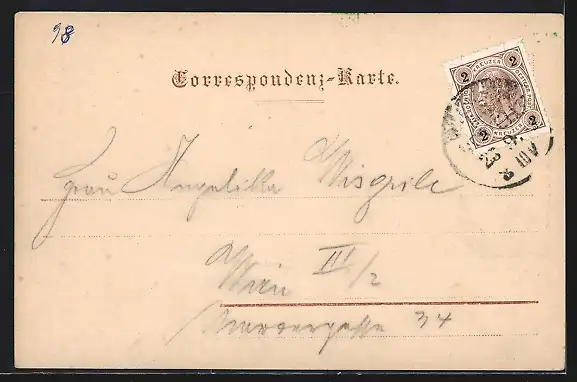 98
Correspondenz-Karte.
2 KREUZER 2
2 KREUZER 2
Frau Angelika Wisgrile
Wien III/2
Marxergasse 34